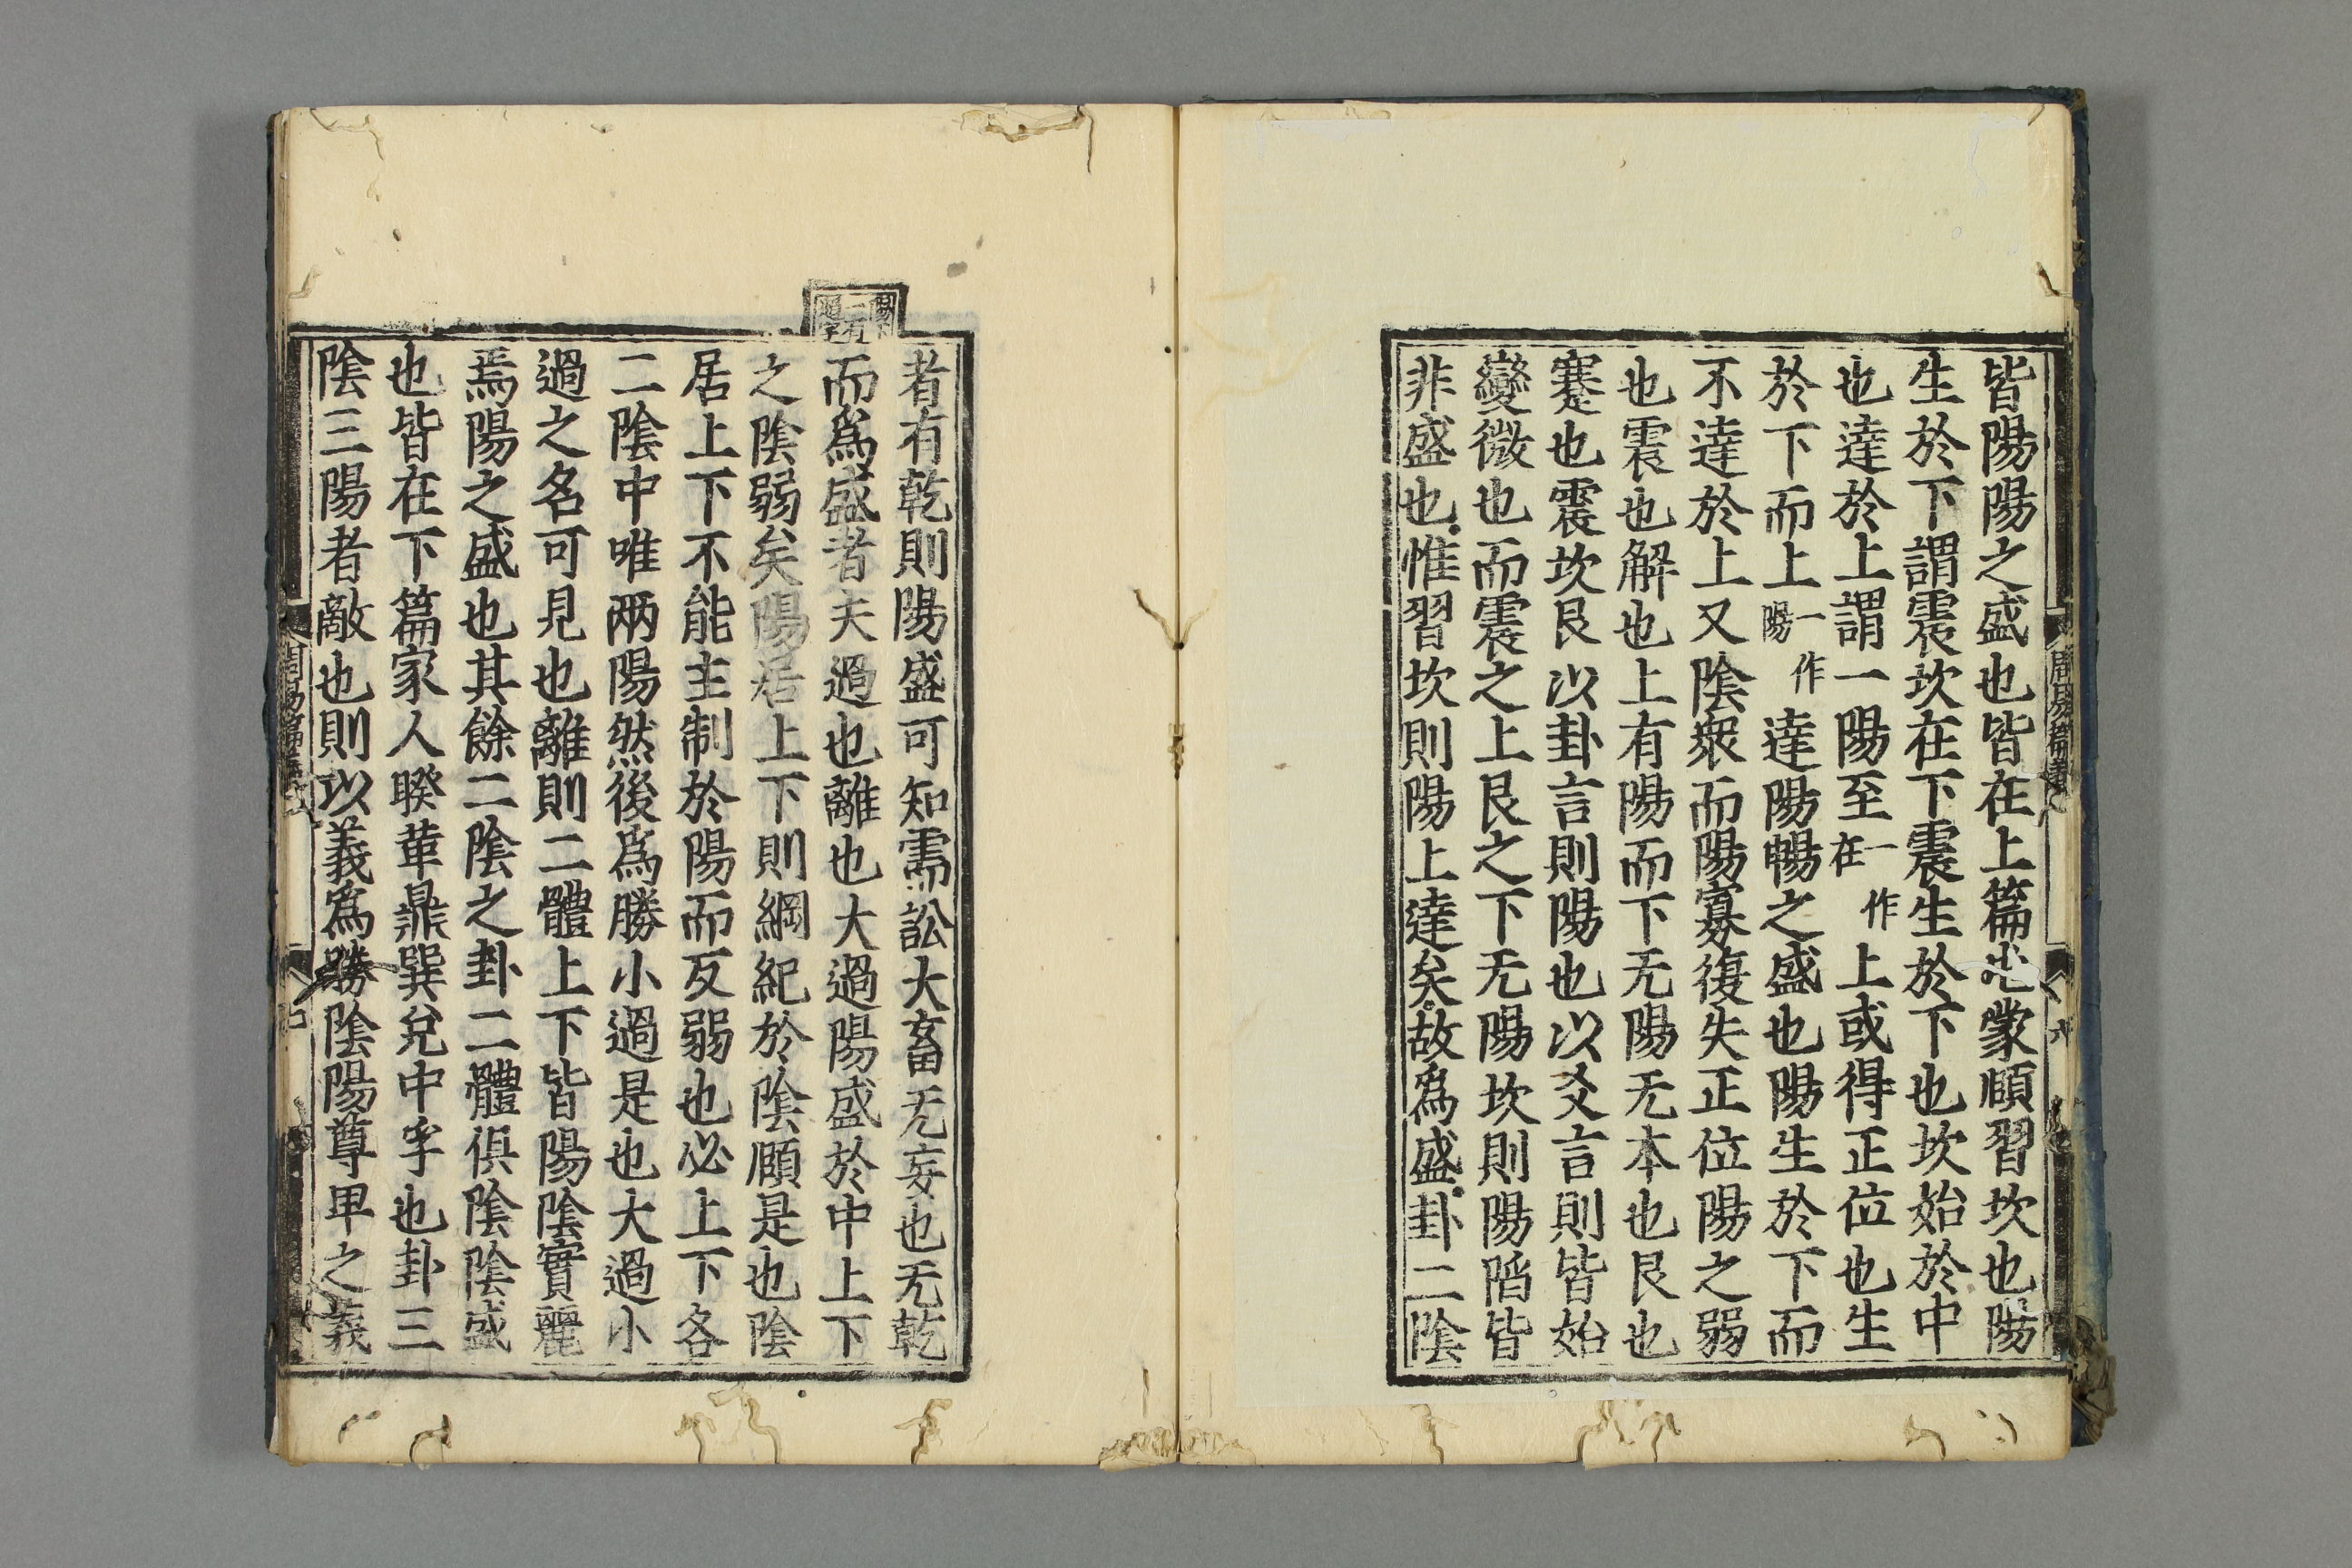 皆陽陽之盛也皆在上篇屯蒙頤習坎也陽
生於下謂震坎在下震生於下也坎始於中
也達於上謂一陽至一作在上或得正位也生
於下而上一作陽達陽暢之盛也陽生於下而
不達於上又陰衆而陽寡復失正位陽之弱
也震也解也上有陽而下无陽无本也艮也
蹇也震坎艮以卦言則陽也以爻言則皆始
變微也而震之上艮之下无陽坎則陽陷皆
非盛也惟習坎則陽上達矣故爲盛卦二陰
者有乾則陽盛可知需訟大畜无妄也无乾
而爲盛者大過也離也大過陽盛於中上下
之陰弱矣陽居上下則綱紀於陰頤是也陰
居上下不能主制於陽而反弱也必上下各
二陰中唯兩陽然後爲勝小過是也大過小
過之名可見也離則二體上下皆陽陰實麗
焉陽之盛也其餘二陰之卦二體俱陰陰盛
也皆在下篇家人睽革鼎巽兌中孚也卦三
陰三陽者敵也則以義爲勝陰陽尊卑之義
周易篇義